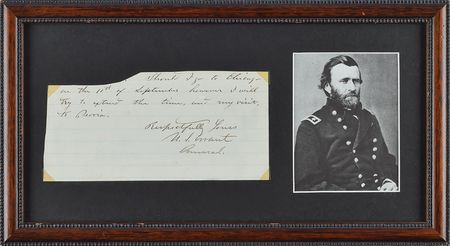 Should I go to Chicago
on the 10th of September however I will
try to extend the time, and my visit,
to Peoria.
Respectfully Yours
U. S. Grant
General.